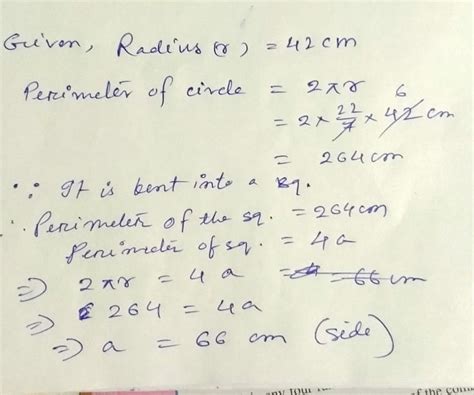 Given, Radius (r) = 42 cm
Perimeter of circle = 2πr
= 2 × 22/7 × 42 cm 6
= 264 cm
∵ It is bent into a sq.
∴ Perimeter of the sq. = 264 cm
Perimeter of sq. = 4a
⇒ 2πr = 4a = 66 cm
⇒ 264 = 4a
⇒ a = 66 cm (side)